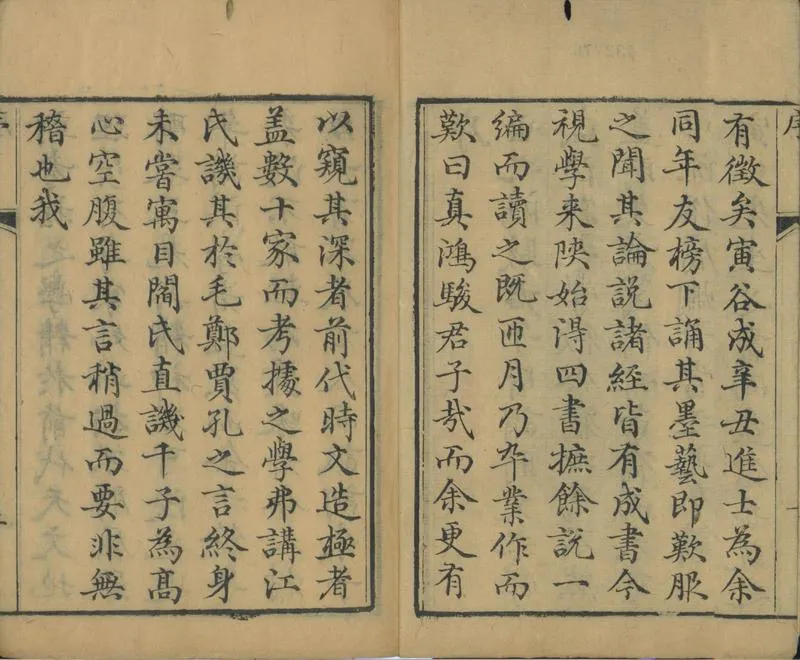 有徵矣寅谷成辛丑進士為余
同年友榜下誦其墨藝即歎服
之聞其論說諸經皆有成書今
視學来陝始淂四書摭餘說一
編而讀之既匝月乃卒業作而
歎曰真鴻駿君子㢤而余更有
以窺其深者前代時文造極者
盖數十家而考據之學弗講江
氏譏其於毛鄭賈孔之言終身
未嘗寓目閻氏直譏千子為髙
心空腹雖其言稍過而要非無
稽也我